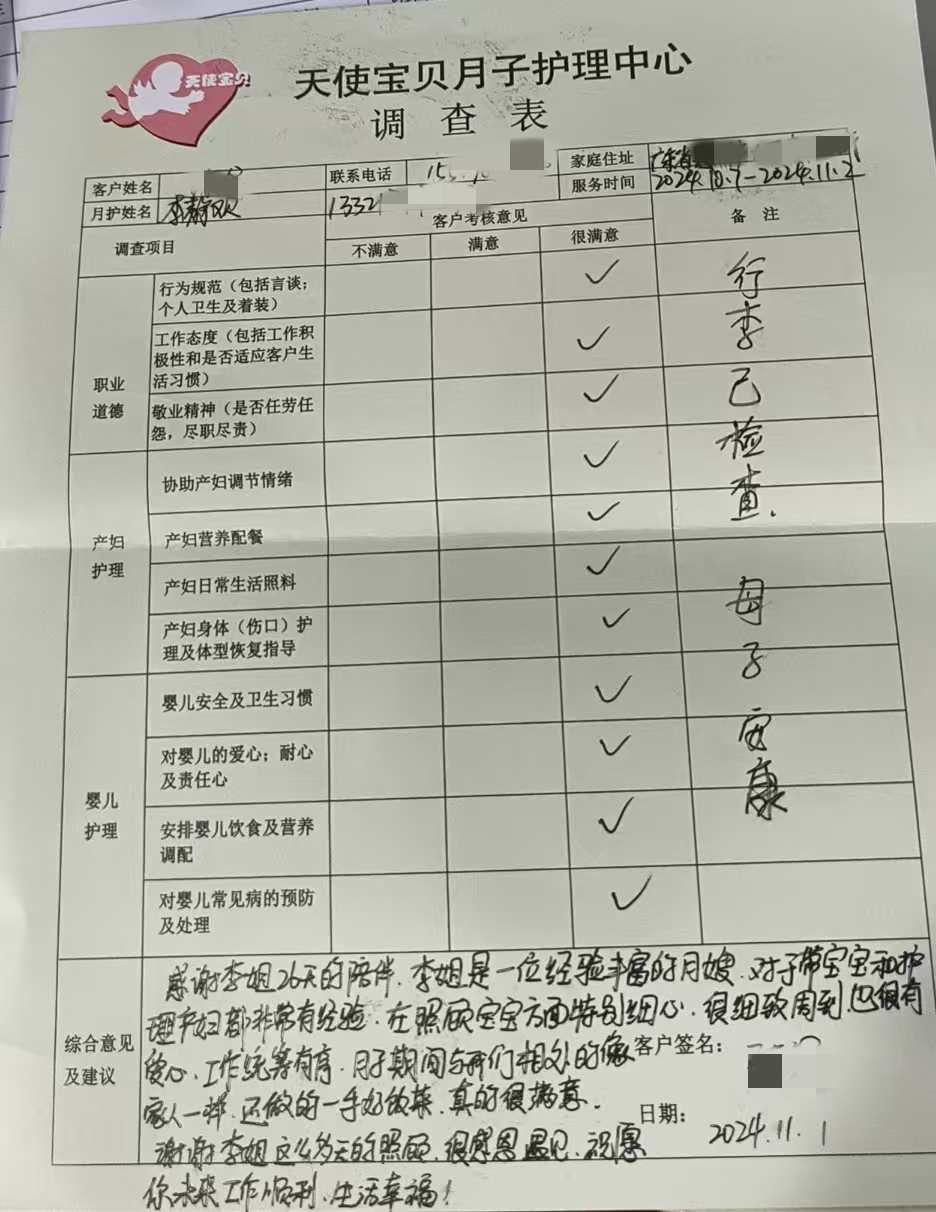 天使宝贝
天使宝贝月子护理中心
调查表
客户姓名 联系电话 15 家庭住址 广东省
月护姓名 李静欢 1332 服务时间 2024.10.7-2024.11.2
调查项目 客户考核意见 备注
不满意 满意 很满意
职业道德
行为规范（包括言谈；
个人卫生及着装） ✓
工作态度（包括工作积
极性和是否适应客户生
活习惯） ✓
敬业精神（是否任劳任
怨，尽职尽责） ✓
产妇护理
协助产妇调节情绪 ✓
产妇营养配餐 ✓
产妇日常生活照料 ✓
产妇身体（伤口）护
理及体型恢复指导 ✓
婴儿护理
婴儿安全及卫生习惯 ✓
对婴儿的爱心；耐心
及责任心 ✓
安排婴儿饮食及营养
调配 ✓
对婴儿常见病的预防
及处理 ✓
行李已检查.
母子安康
综合意见
及建议
感谢李姐26天的陪伴.李姐是一位经验丰富的月嫂.对于带宝宝和护
理产妇都非常有经验.在照顾宝宝方面特别细心、很细致周到.也很有
爱心、工作统筹有序.月子期间与我们相处的像
家人一样.还做的一手好饭菜.真的很满意.
谢谢李姐这么多天的照顾、很感恩遇见、祝愿
你未来工作顺利、生活幸福！
客户签名：
日期：2024.11.1